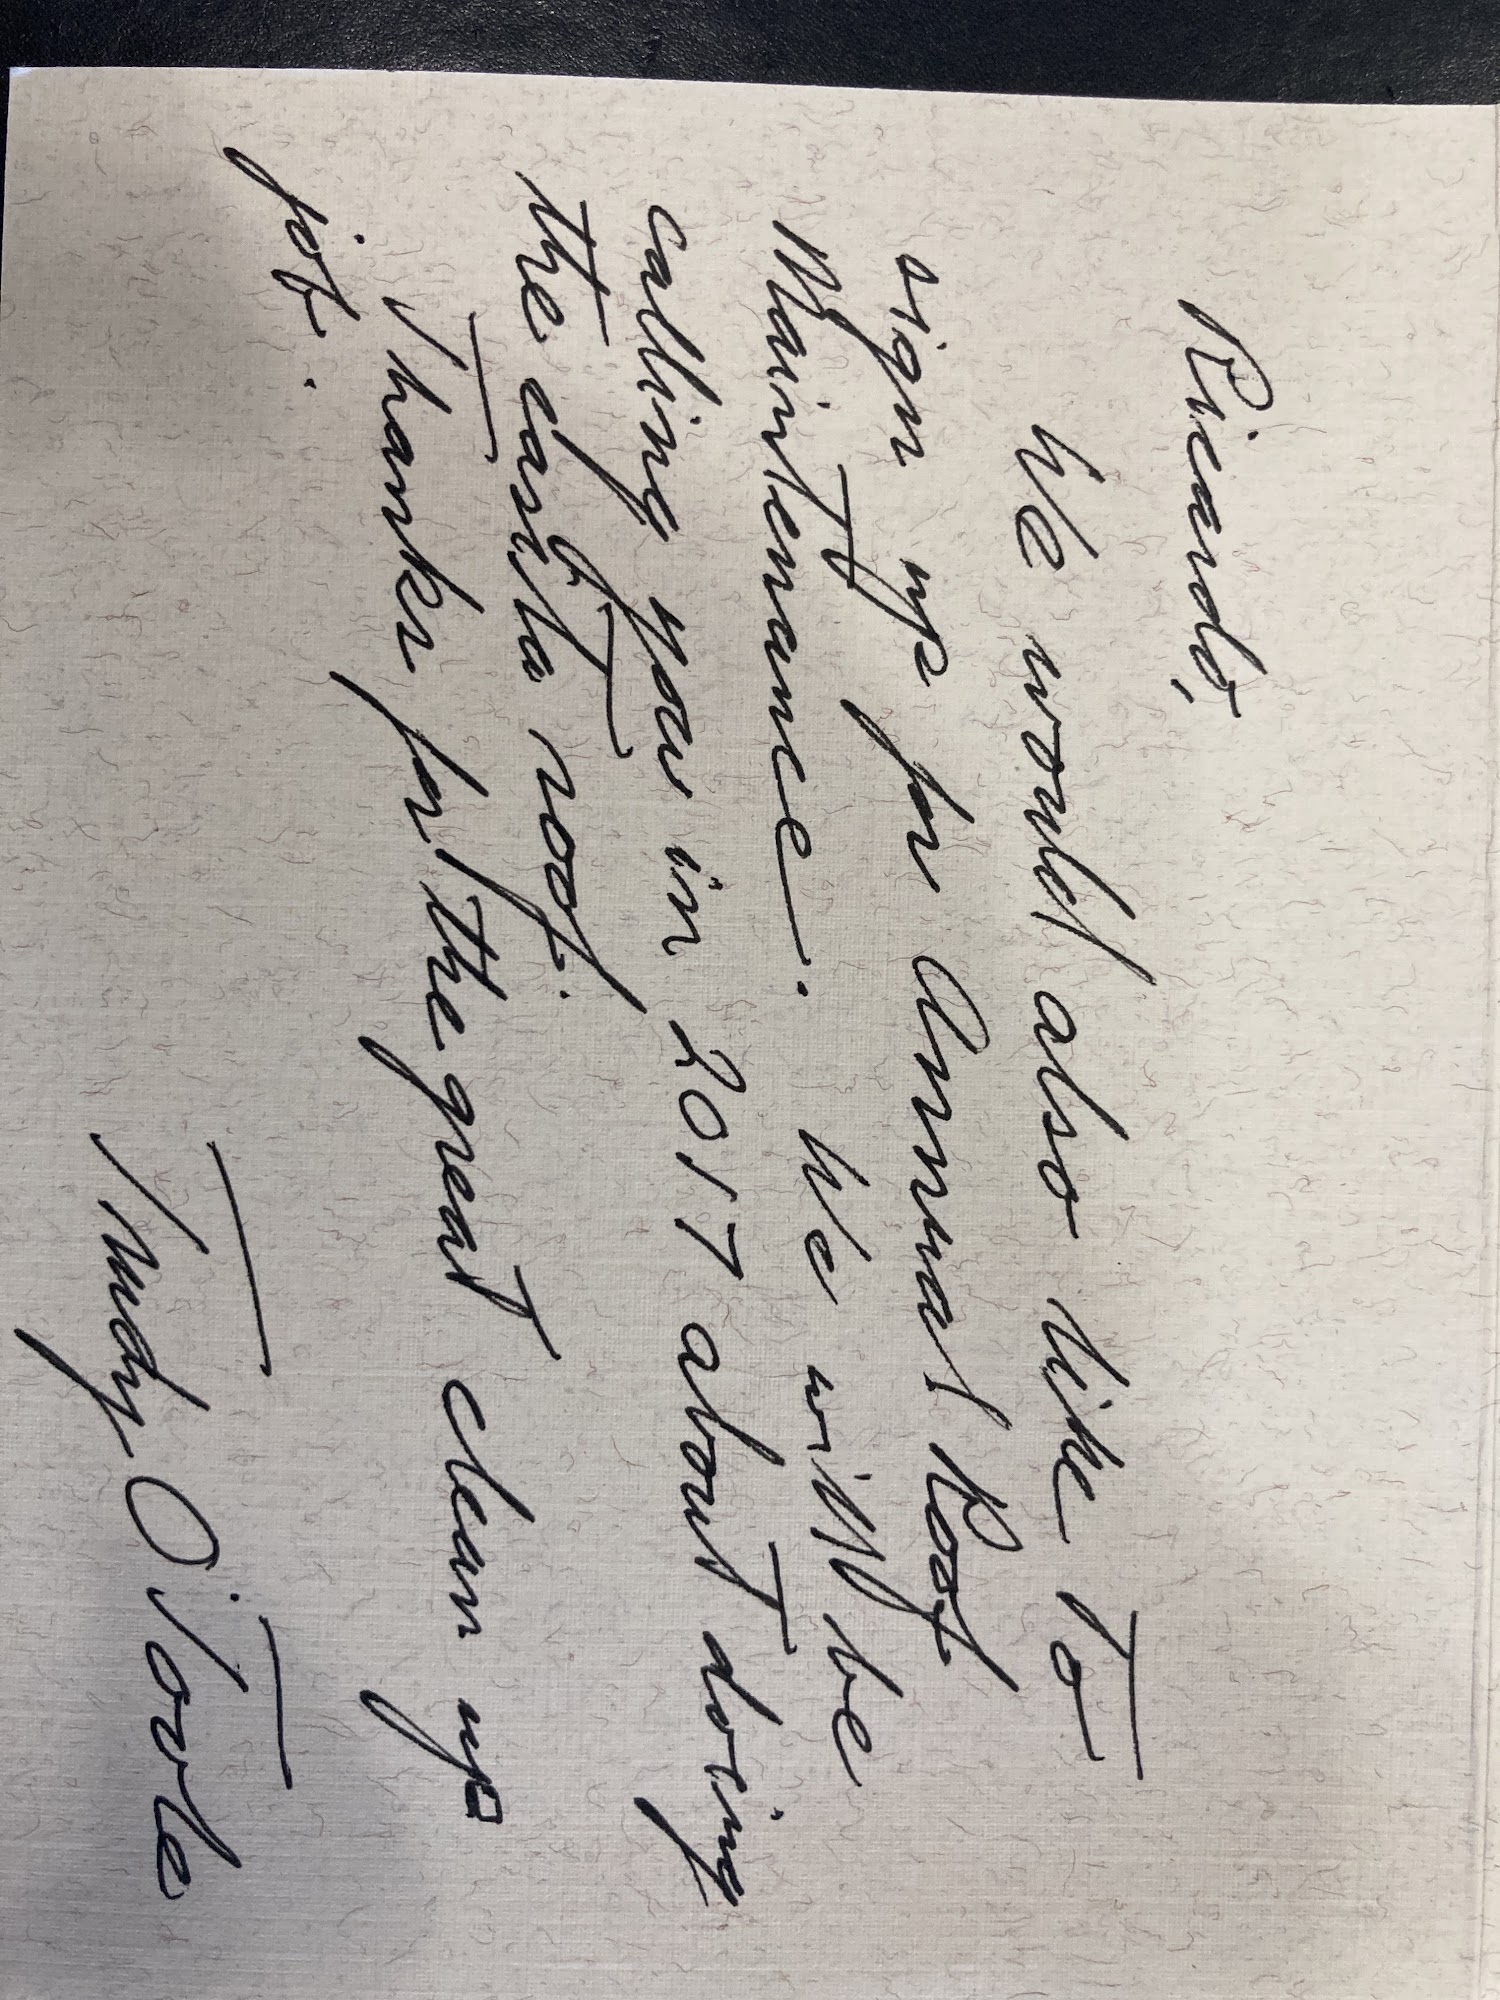 Ricardo,
We would also like to
sign up for Annual Roof
Maintenance. We will be
calling you in 2017 about doing
the casita roof.
Thanks for the great clean up
job.
Trudy O'Toole